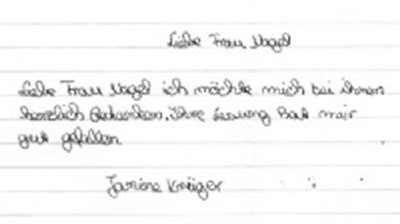 Liebe Frau Nagel
Liebe Frau Nagel ich möchte mich bei ihnen
herzlich Bedanken. Ihre Lesung hat mir
gut gefallen
Janine Krüger